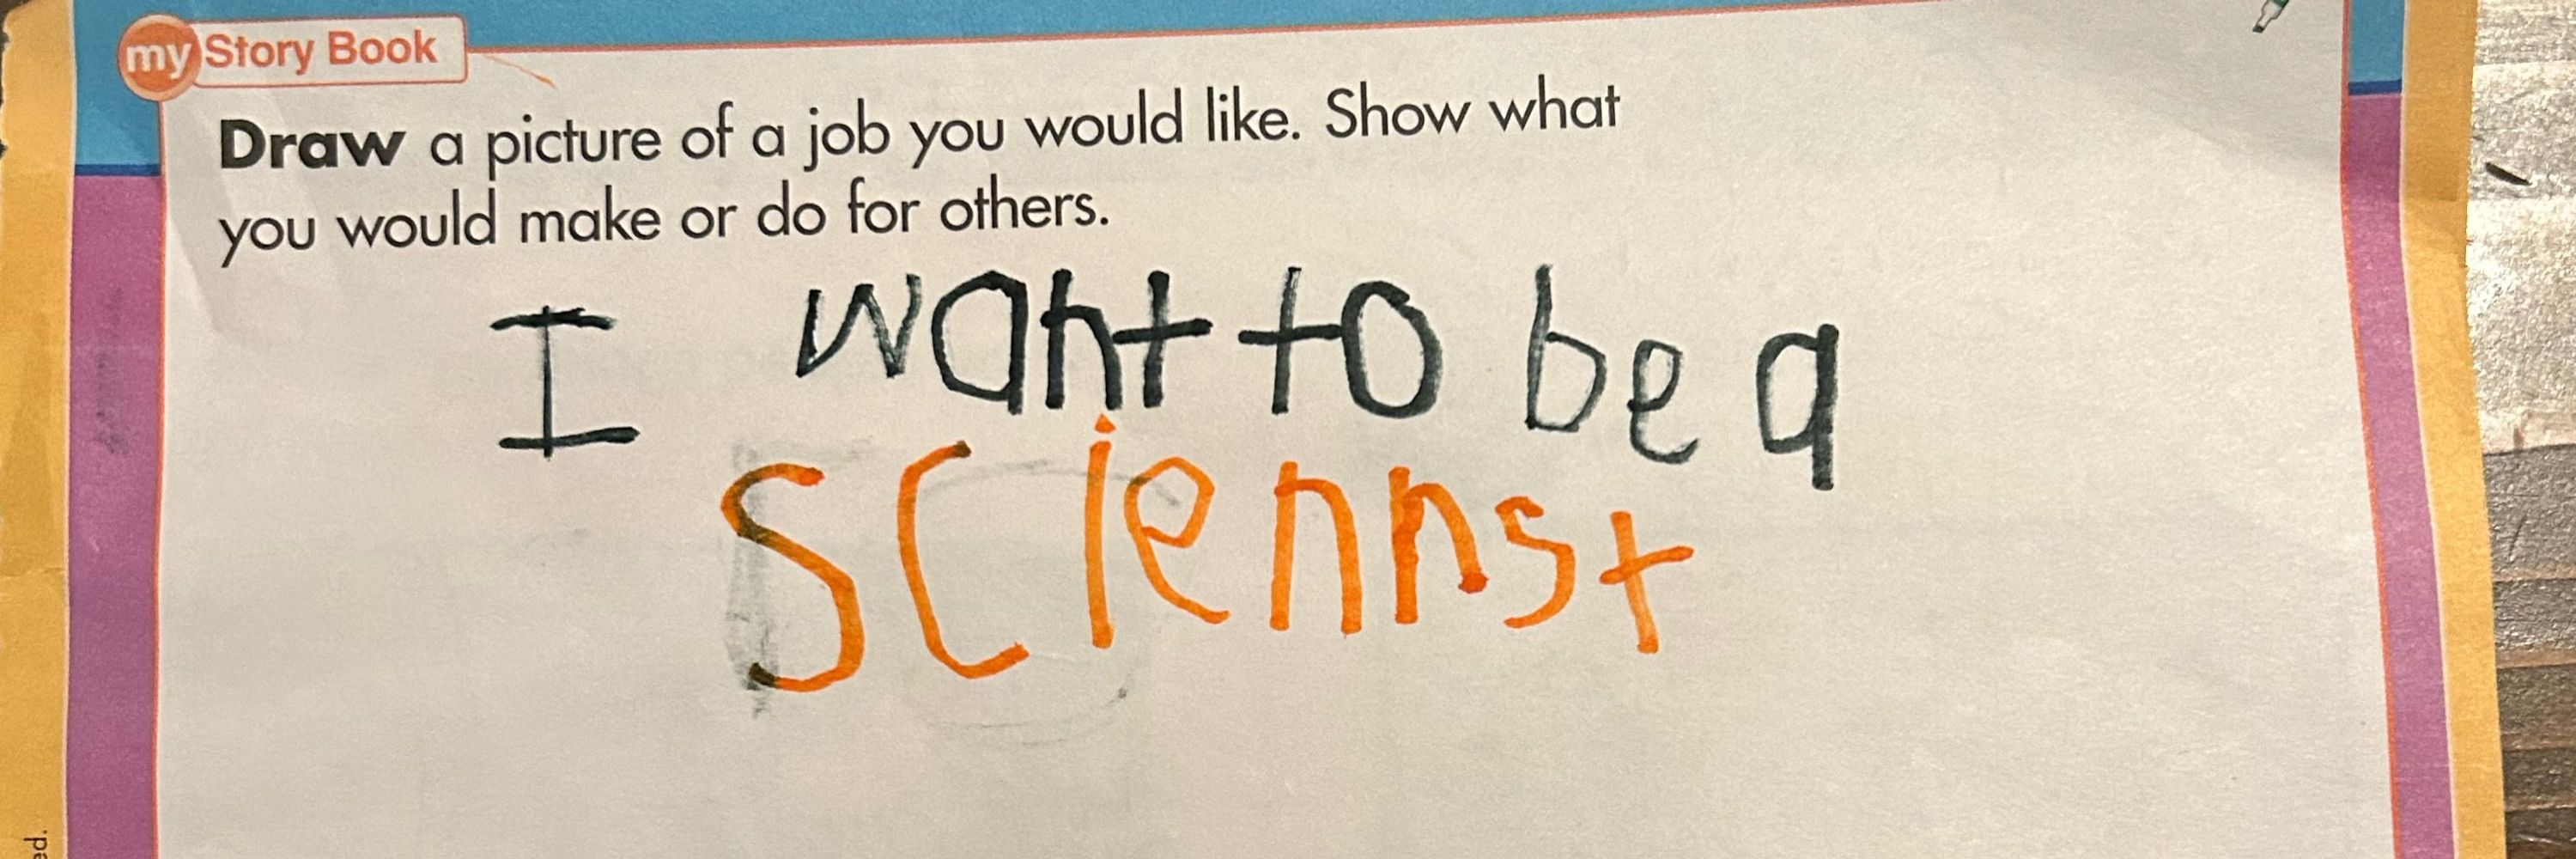 my Story Book
Draw a picture of a job you would like. Show what
you would make or do for others.
I want to be a
sciennst
ed.